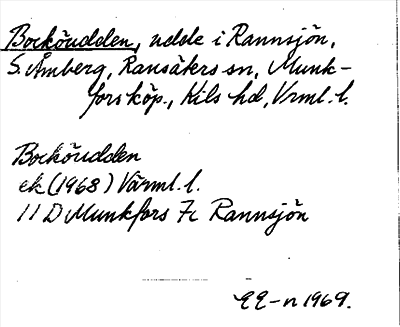 Bocköudden, udde i Rannsjön,
S. Åmberg, Ransäters sn, Munk-
fors köp., Kils hd, Vrml. l.
Bocköudden
ek (1968) Värml. l.
11 D Munkfors 7c Rannsjön
1969.